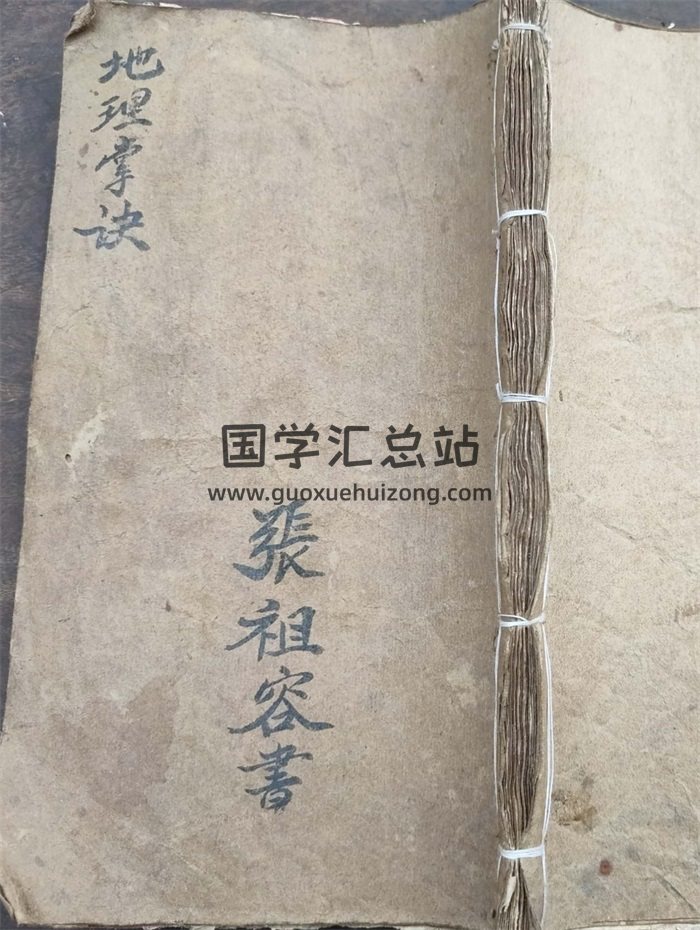 地理掌訣
国学汇总站
www.guoxuehuizong.com
張祖容書